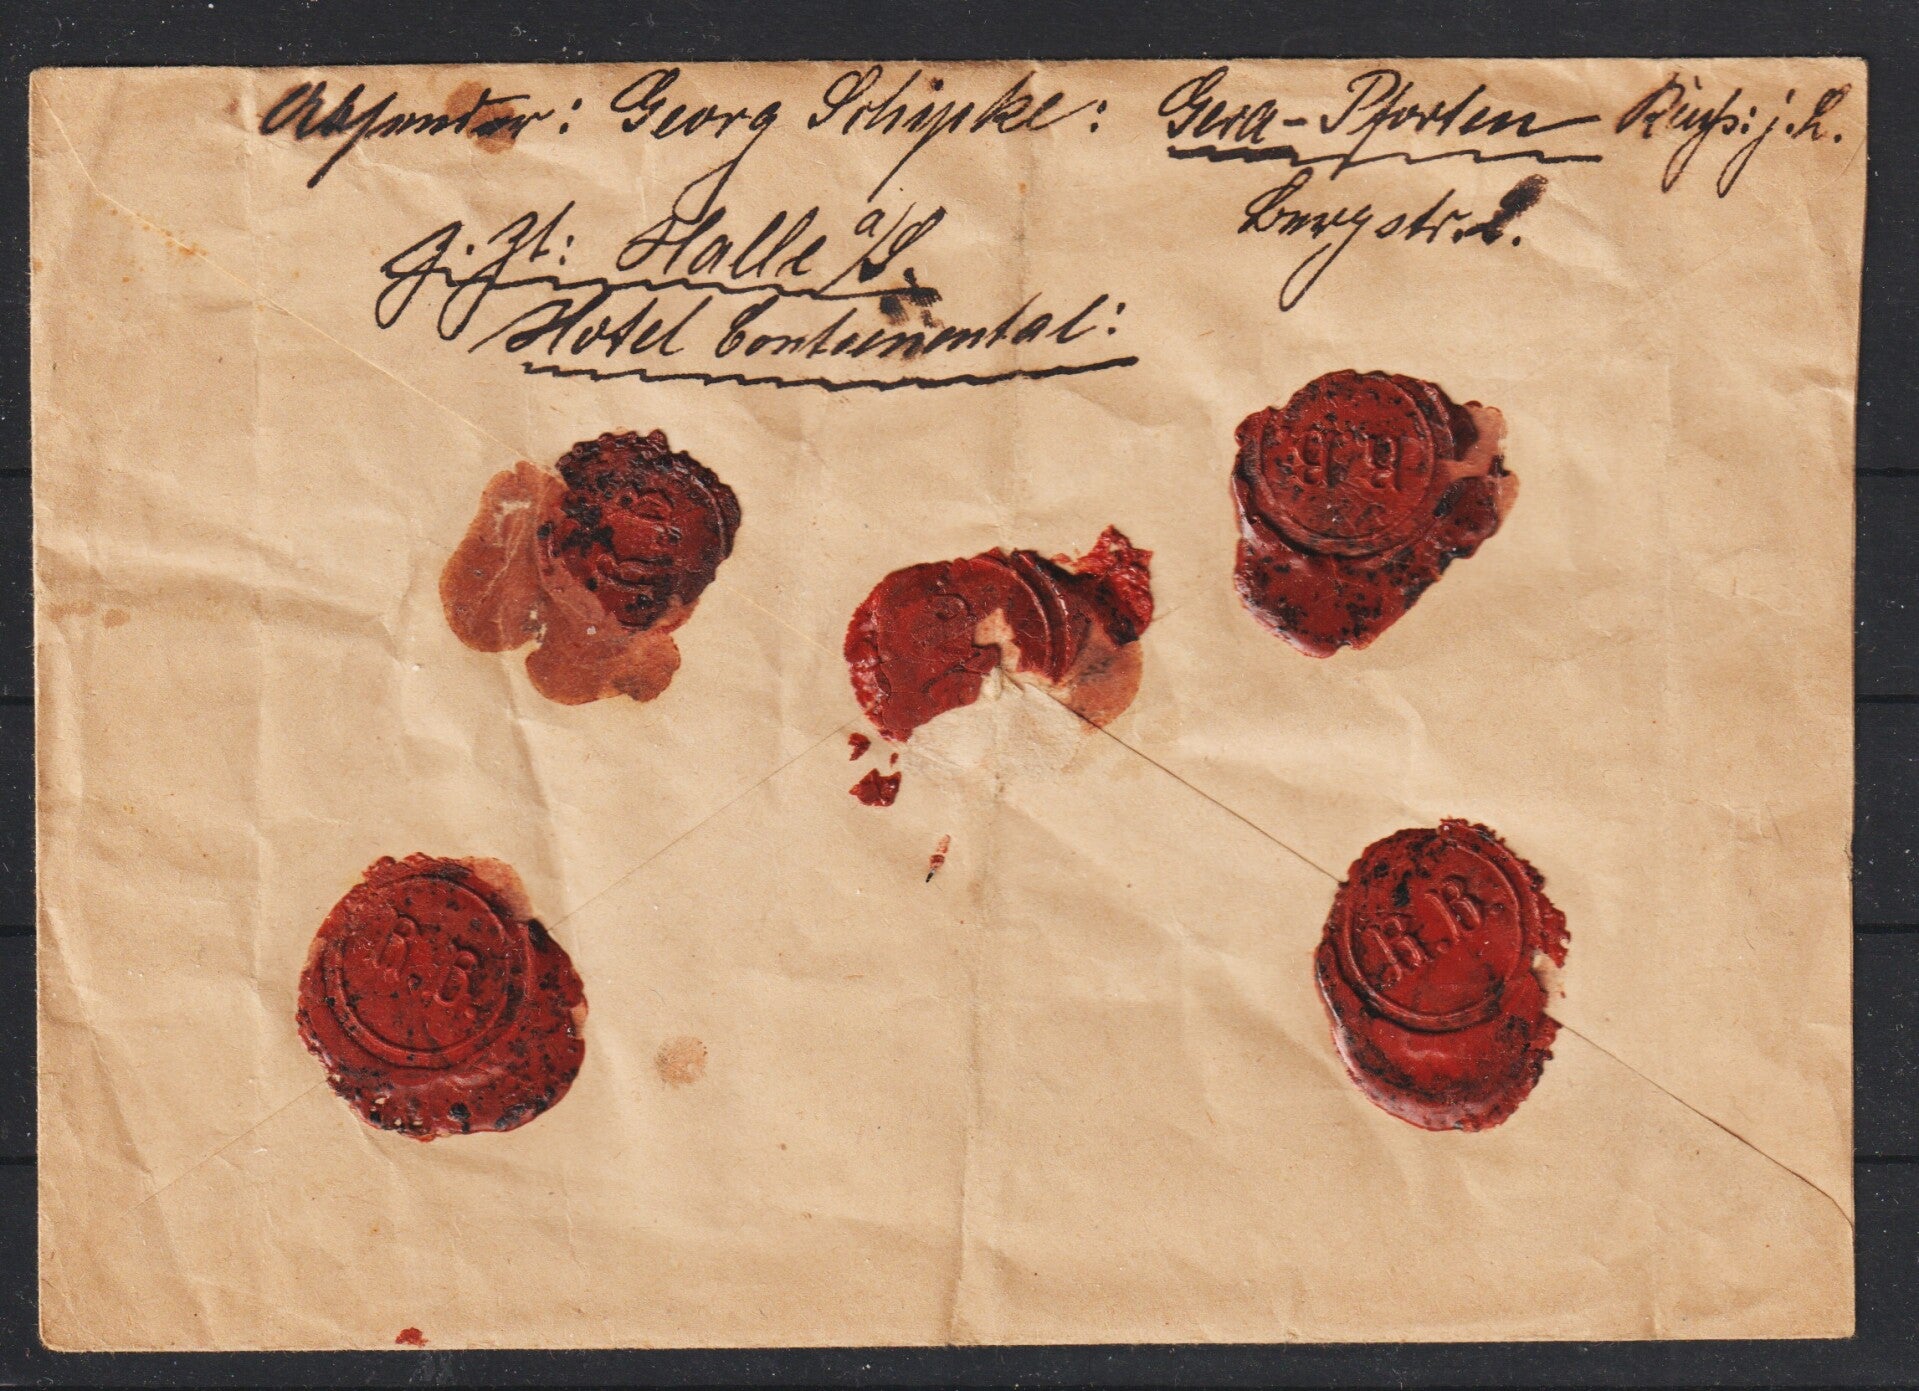 Absender: Georg Schipke: Gera-Pforten Reuß: j. L.
Bergstr. 2.
Z. Zt: Halle a/S.
Hotel Continental:
R.B.